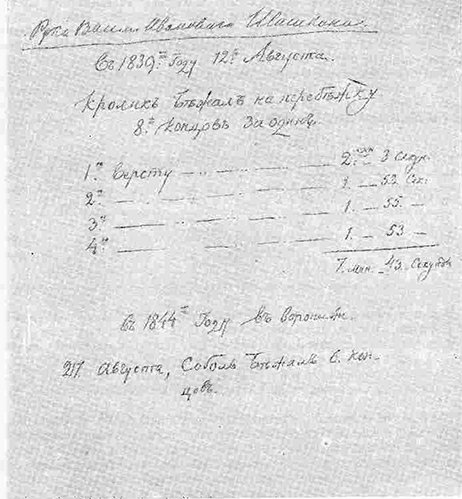 Рука Васил. Ивановича Шишкина.
Въ 1839.м Году 12.го Августа.
Кроликъ бѣжалъ на перебѣжку
8.м концовъ за одинъ.
1.я версту — 2. мин 3 секун.
2.я — 1. — 52 Сек.
3.я — 1. — 55. —
4.я — 1. — 53 —
7. мин. 43. Секунды
Въ 1844 Году въ Воронеж.
Августа, Соболь бѣжалъ 6. кон-
цовъ.